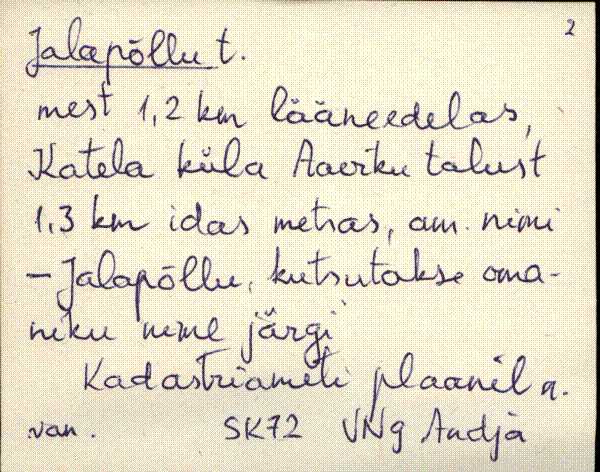 2
Jalapõllu t.
mest 1,2 km lääneedelas,
Katela küla Aaeriku talust
1,3 km idas metsas, am. nimi
– Jalapõllu, kutsutakse oma-
niku nime järgi
Kadastriameti plaanil n.
van. SK72 VNg Andja